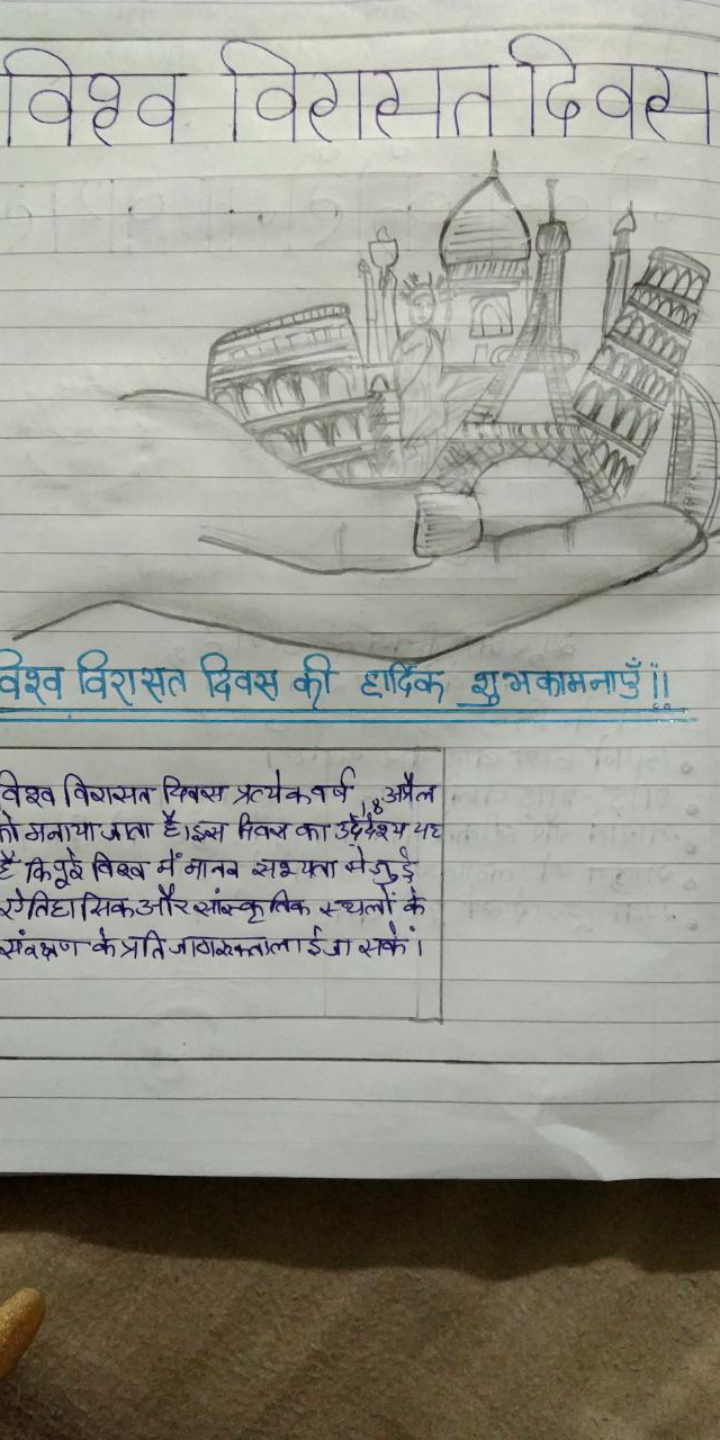 विश्व विरासत दिवस
विश्व विरासत दिवस की हार्दिक शुभकामनाएँ !!
विश्व विरासत दिवस प्रत्येक वर्ष 18 अप्रैल
को मनाया जाता है। इस दिवस का उद्देश्य यह
है कि पूरे विश्व में मानव सभ्यता से जुड़े
ऐतिहासिक और सांस्कृतिक स्थलों के
संरक्षण के प्रति जागरूकता लाई जा सकें।